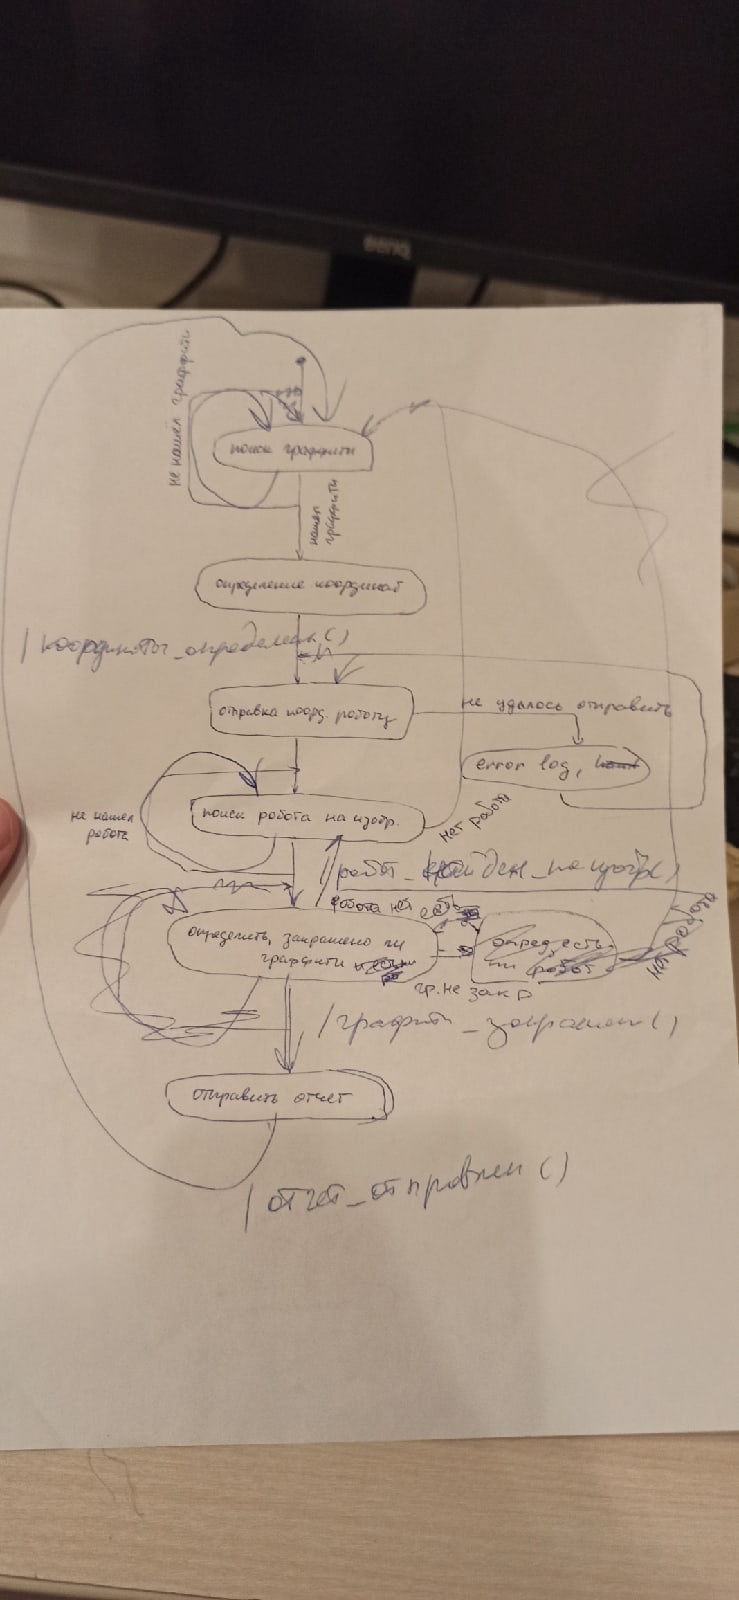 BenQ
не нашёл граффити
поиск граффити
нашел
граффити
определение координат
/ координаты_определены()
отправка коорд. роботу
не удалось отправить
error log,
поиск робота на изобр.
не нашел
робота
нет робота
/робот_найден_на_изобр()
робота нет
есть
определить, закрашено ли
граффити
опред. есть
ли робот
нет робота
гр. не закр
/граффити_закрашено()
отправить отчет
/ отчёт_отправлен()